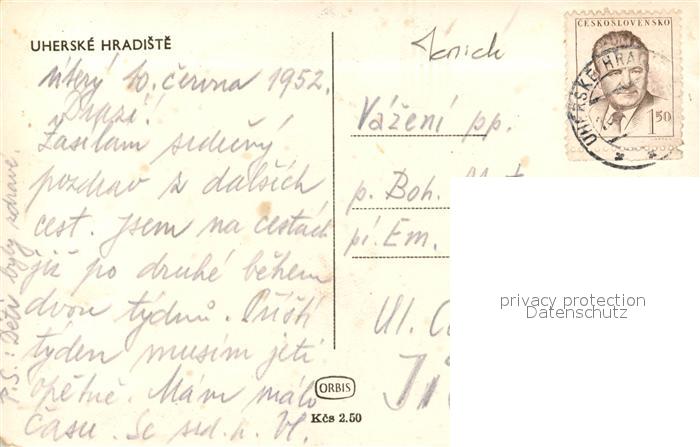 UHERSKÉ HRADIŠTĚ
úterý 10. června 1952.
Drazí!
Zasílám srdečný
pozdrav z dalších
cest. Jsem na cestách
již po druhé během
dvou týdnů. Příští
týden musím jeti
opětně. Mám málo
času. Se srd. h. Vl.
P.S.: Děti byly zdravé.
ORBIS
Kčs 2.50
ČESKOSLOVENSKO
1.50
UHERSKÉ HRAD
Vážení pp.
p. Boh.
pí. Em.
Ul.
privacy protection
Datenschutz